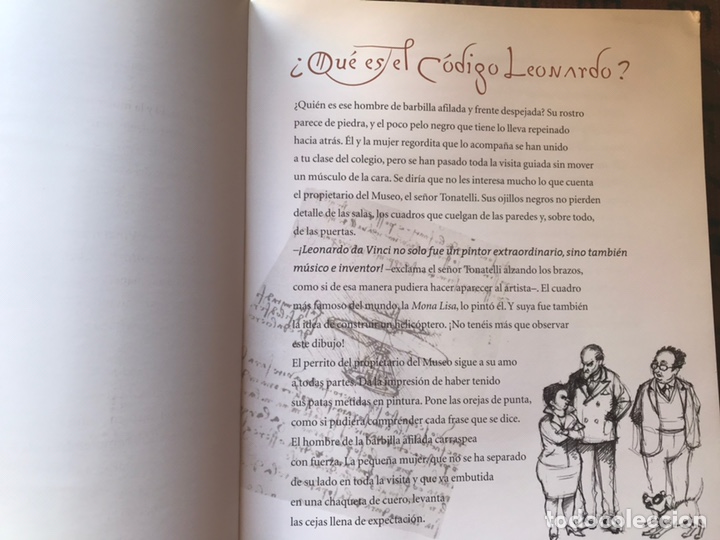 ¿Qué es el Código Leonardo?
¿Quién es ese hombre de barbilla afilada y frente despejada? Su rostro
parece de piedra, y el poco pelo negro que tiene lo lleva repeinado
hacia atrás. Él y la mujer regordita que lo acompaña se han unido
a tu clase del colegio, pero se han pasado toda la visita guiada sin mover
un músculo de la cara. Se diría que no les interesa mucho lo que cuenta
el propietario del Museo, el señor Tonatelli. Sus ojillos negros no pierden
detalle de las salas, los cuadros que cuelgan de las paredes y, sobre todo,
de las puertas.
–¡Leonardo da Vinci no solo fue un pintor extraordinario, sino también
músico e inventor! –exclama el señor Tonatelli alzando los brazos,
como si de esa manera pudiera hacer aparecer al artista–. El cuadro
más famoso del mundo, la Mona Lisa, lo pintó él. Y suya fue también
la idea de construir un helicóptero. ¡No tenéis más que observar
este dibujo!
El perrito del propietario del Museo sigue a su amo
a todas partes. Da la impresión de haber tenido
sus patas metidas en pintura. Pone las orejas de punta,
como si pudiera comprender cada frase que se dice.
El hombre de la barbilla afilada carraspea
con fuerza. La pequeña mujer, que no se ha separado
de su lado en toda la visita y que va embutida
en una chaqueta de cuero, levanta
las cejas llena de expectación.
todocoleccion